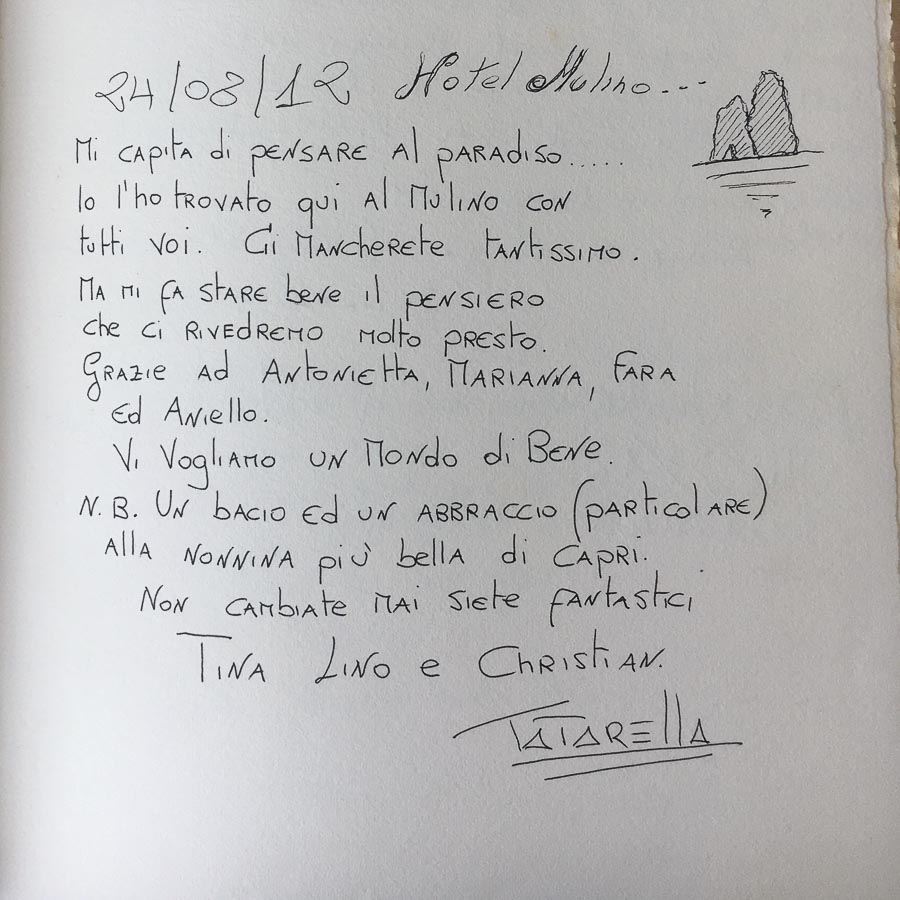 24/08/12 Hotel Mulino...
Mi capita di pensare al paradiso.....
Io l'ho trovato qui al Mulino con
tutti voi. Ci mancherete tantissimo.
Ma mi fa stare bene il pensiero
che ci rivedremo molto presto.
Grazie ad Antonietta, Marianna, Fara
ed Aniello.
Vi Vogliamo un Mondo di Bene.
N.B. Un bacio ed un abbraccio (particolare)
alla nonnina più bella di Capri.
Non cambiate mai siete fantastici
Tina Lino e Christian.
Tatarella